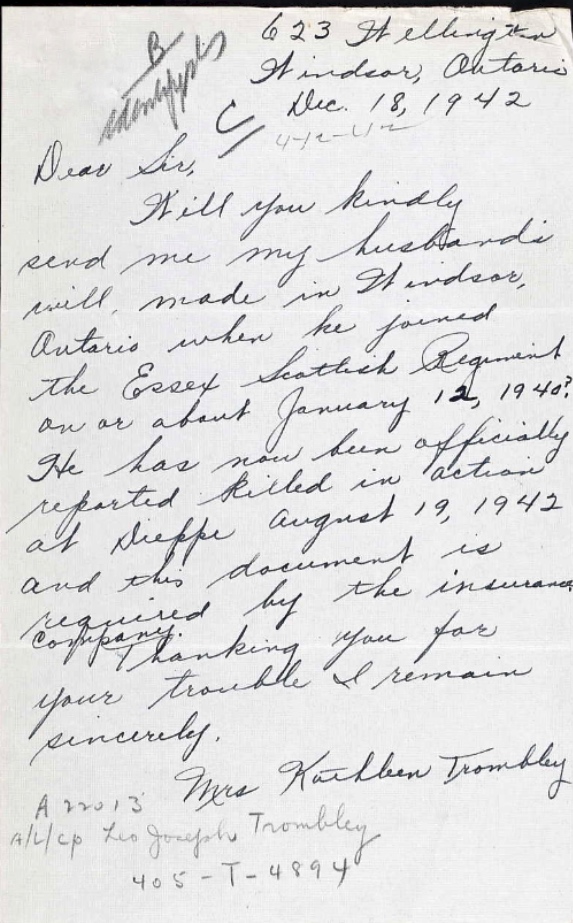 623 Wellington
Windsor, Ontario
Dec. 18, 1942
B
C
4-12-42
Dear Sir,
Will you kindly
send me my husband's
will, made in Windsor,
Ontario when he joined
the Essex Scottish Regiment
on or about January 12, 1940?
He has now been officially
reported killed in action
at Dieppe August 19, 1942
and this document is
required by the insurance
company.
Thanking you for
your trouble I remain
sincerely.
Mrs Kathleen Trombley
A 22013
A/L/Cp Leo Joseph Trombley
405-T-4894